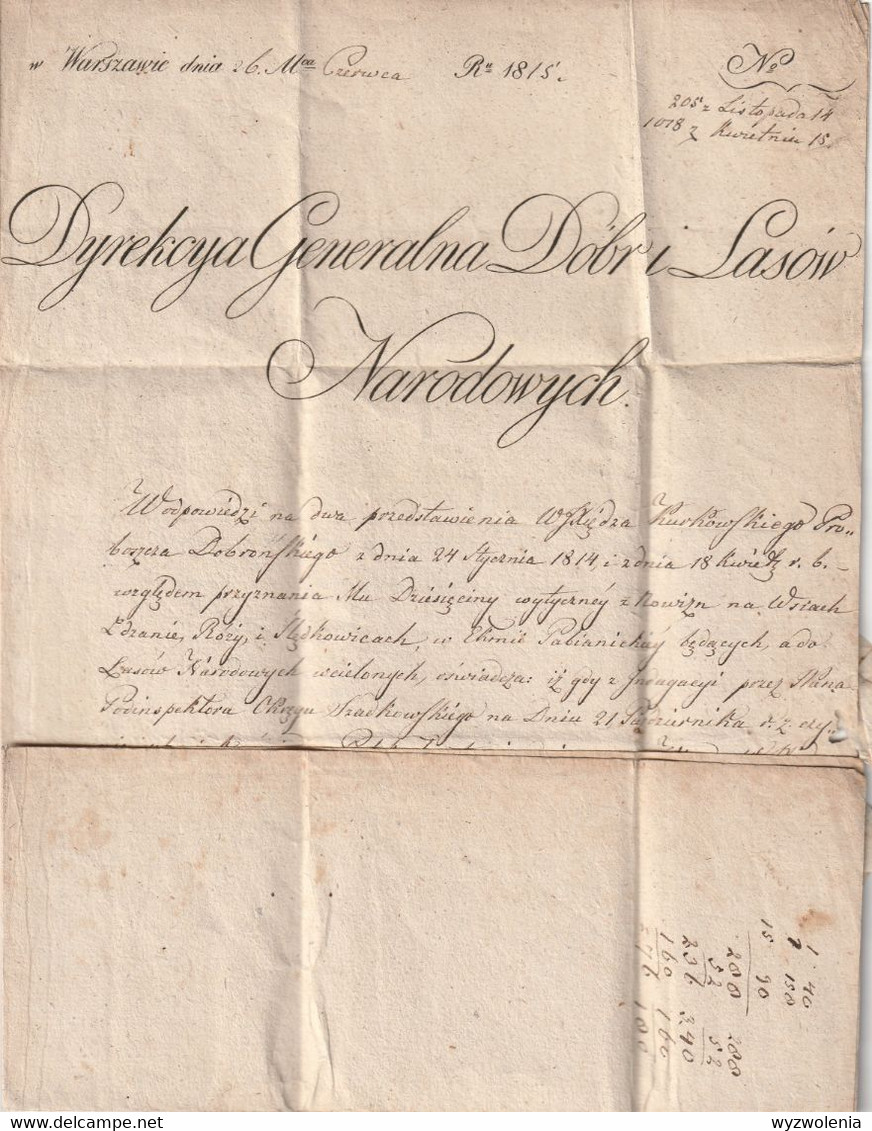 w Warszawie dnia 26. Mca Czerwca Ru 1815.
No
205 z Listopada 14
1078 z Kwietnia 15.
Dyrekcya Generalna Dóbr i Lasów
Narodowych.
W odpowiedzi na dwa przedstawienia W Xiędza Kurkowskiego Pro„
boszcza Dobrońskiego z dnia 24 Stycznia 1814, i z dnia 18 Kwiet. r. b. –
względem przyznania Mu Dziesięciny wytyczney z Nowizn na Wsiach
Ldzanie, Róży, i Ślędkowicach, w Ekmie Pabianickiey będących, a do
Lasów Narodowych wcielonych, oświadcza: iż gdy z Indagacyi przez
Podinspektora Okręgu Szadkowskiego na Dniu 21 Października r. z. czy„
1 40
2 150
15 90
200 200
52 52
236 340
160 160
100
wyzwolenia